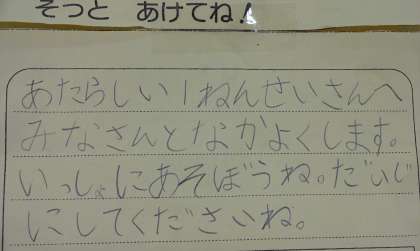 そっと あけてね!
あたらしい1ねんせいさんへ
みなさんとなかよくします。
いっしょにあそぼうね。だいじ
にしてくださいね。